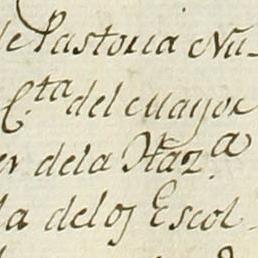 de Pastoria Nu-
C.ta del Mayor
er dela Haz.a
la delos Escol-